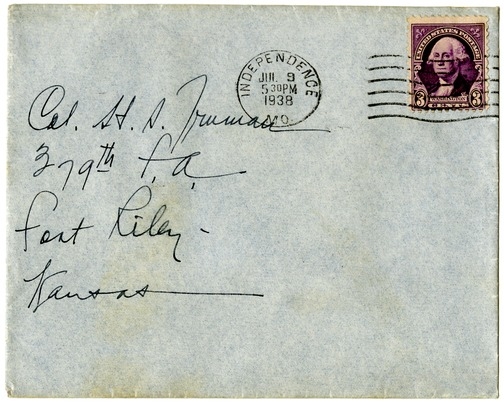 UNITED STATES POSTAGE
WASHINGTON
3 CENTS 3
INDEPENDENCE
JUL 9
5 30PM
1938
MO.
Col. H. S. Truman
379th F. A.
Fort Riley -
Kansas